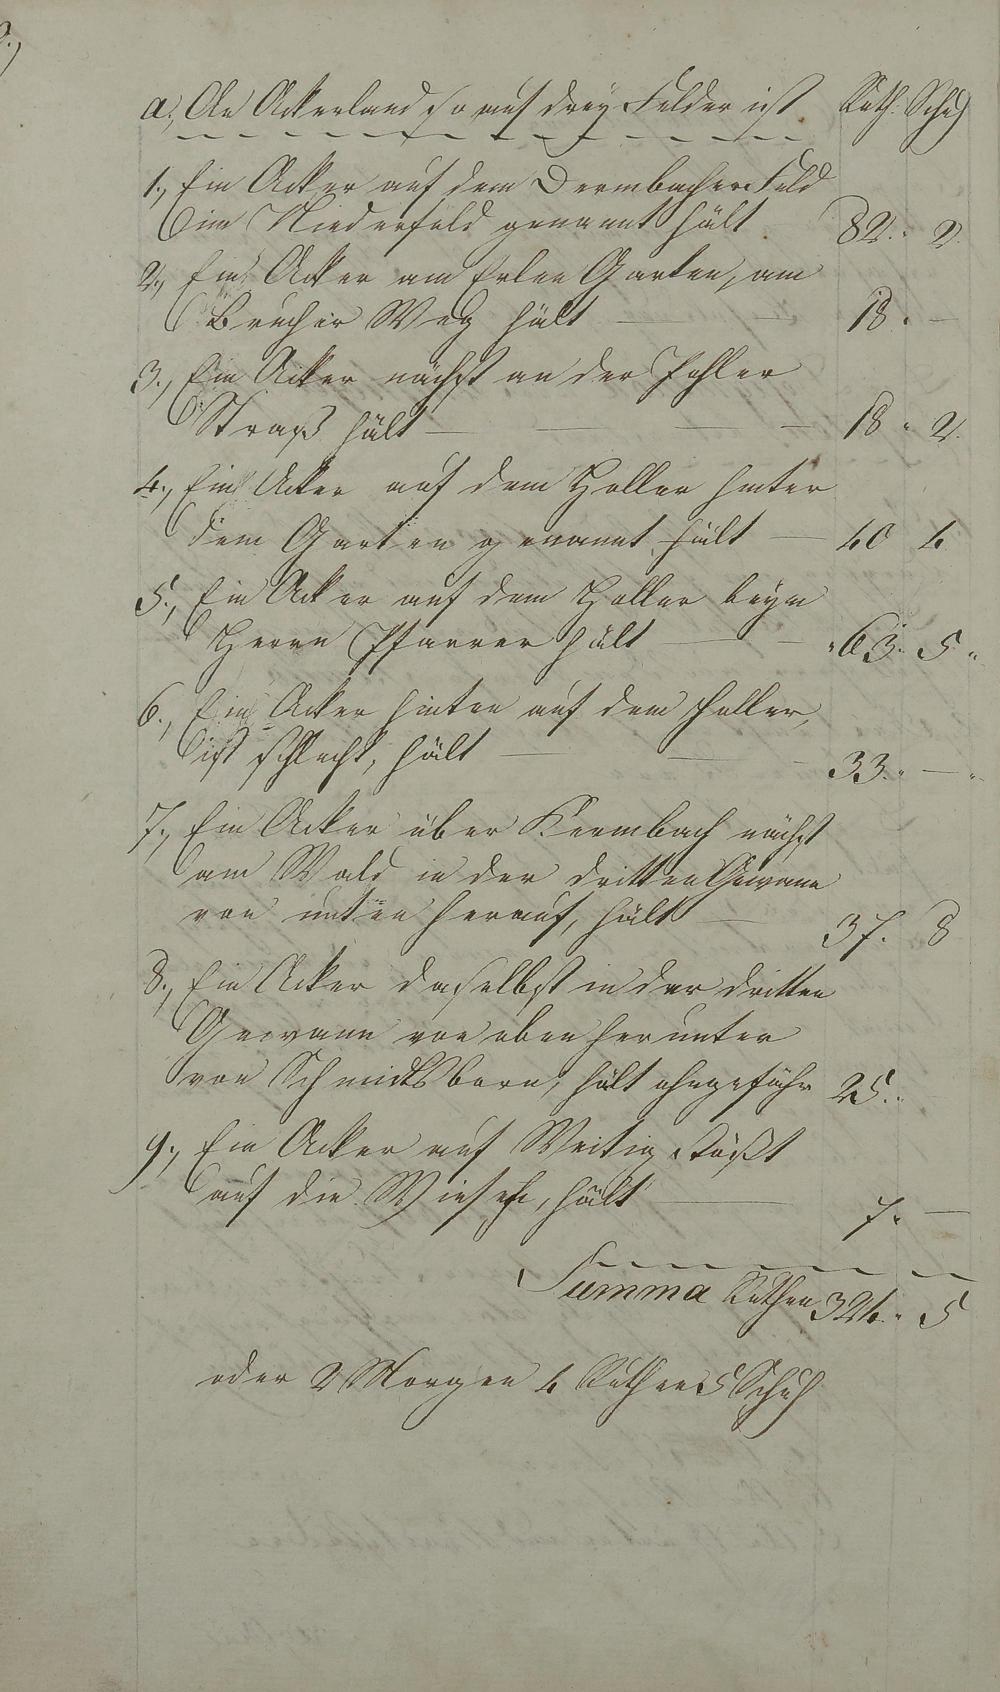 a., An Ackerland so auf drey Felder ist Ruth. Schuh
1., Ein Acker auf dem Dermbacher Feld
im Niederfeld genannt hält 82. 2.
2., Ein Acker am Erlen Garten, am
Brucher Weg hält — — 18. —
3., Ein Acker nächst an der Hohler
Straß hält — — — — 18 2.
4., Ein Acker auf dem Holler hinter
dem Garten genannt hält — 40 4
5., Ein Acker auf dem Holler beym
Herrn Pfarrer hält — — 63. 5
6., Ein Acker hinten auf dem Holler,
ist schlecht, hält — — — 33. —
7., Ein Acker über Krembach nächst
am Wald in der dritten Gewann
von unten herauf, hält — 37. 8
8., Ein Acker daselbst in der dritten
Gewann von oben herunter
von Schmidtsborn, hält ohngefähr 25.
9., Ein Acker auf Weitig stößt
auf die Wiesen, hält — 7. —
Summa Ruthen 324. 5
oder 2 Morgen 4 Ruthen 5 Schuh